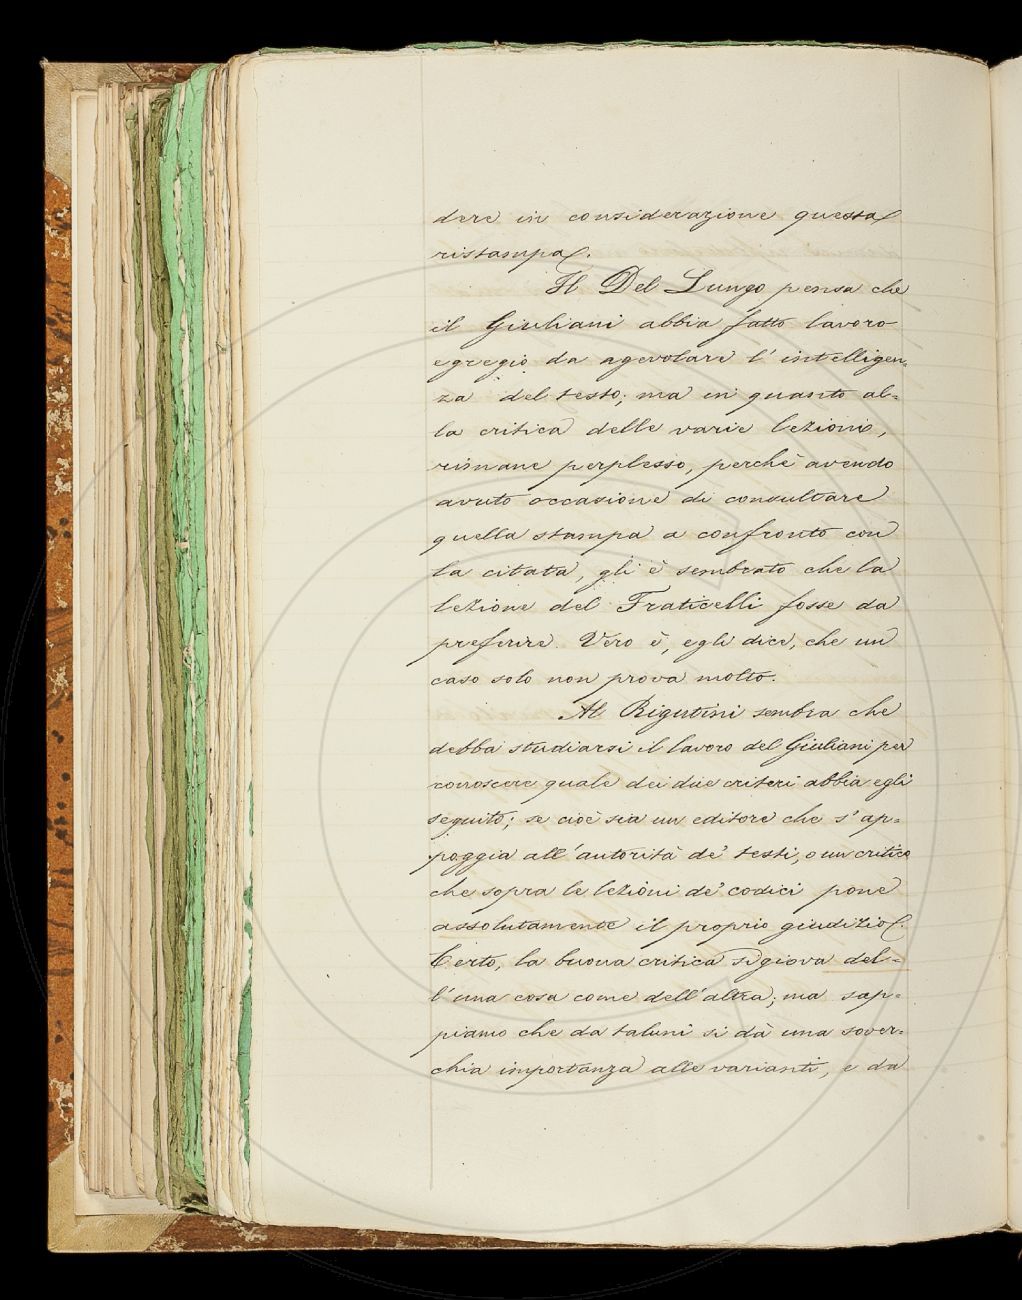 dere in considerazione questa
ristampa.
Il Del Lungo pensa che
il Giuliani abbia fatto lavoro
egregio da agevolare l'intelligen=
za del testo; ma in quanto al=
la critica delle varie lezioni,
rimane perplesso, perchè avendo
avuto occasione di consultare
quella stampa a confronto con
la citata, gli è sembrato che la
lezione del Fraticelli fosse da
preferire. Vero è, egli dice, che un
caso solo non prova molto.
Al Rigutini sembra che
debba studiarsi il lavoro del Giuliani per
conoscere quale dei due criteri abbia egli
seguito; se cioè sia un editore che s'ap=
poggia all'autorità de' testi, o un critico
che sopra le lezioni de' codici pone
assolutamente il proprio giudizio.
Certo, la buona critica si giova del=
l'una cosa come dell'altra; ma sap=
piamo che da taluni si dà una sover=
chia importanza alle varianti, e da